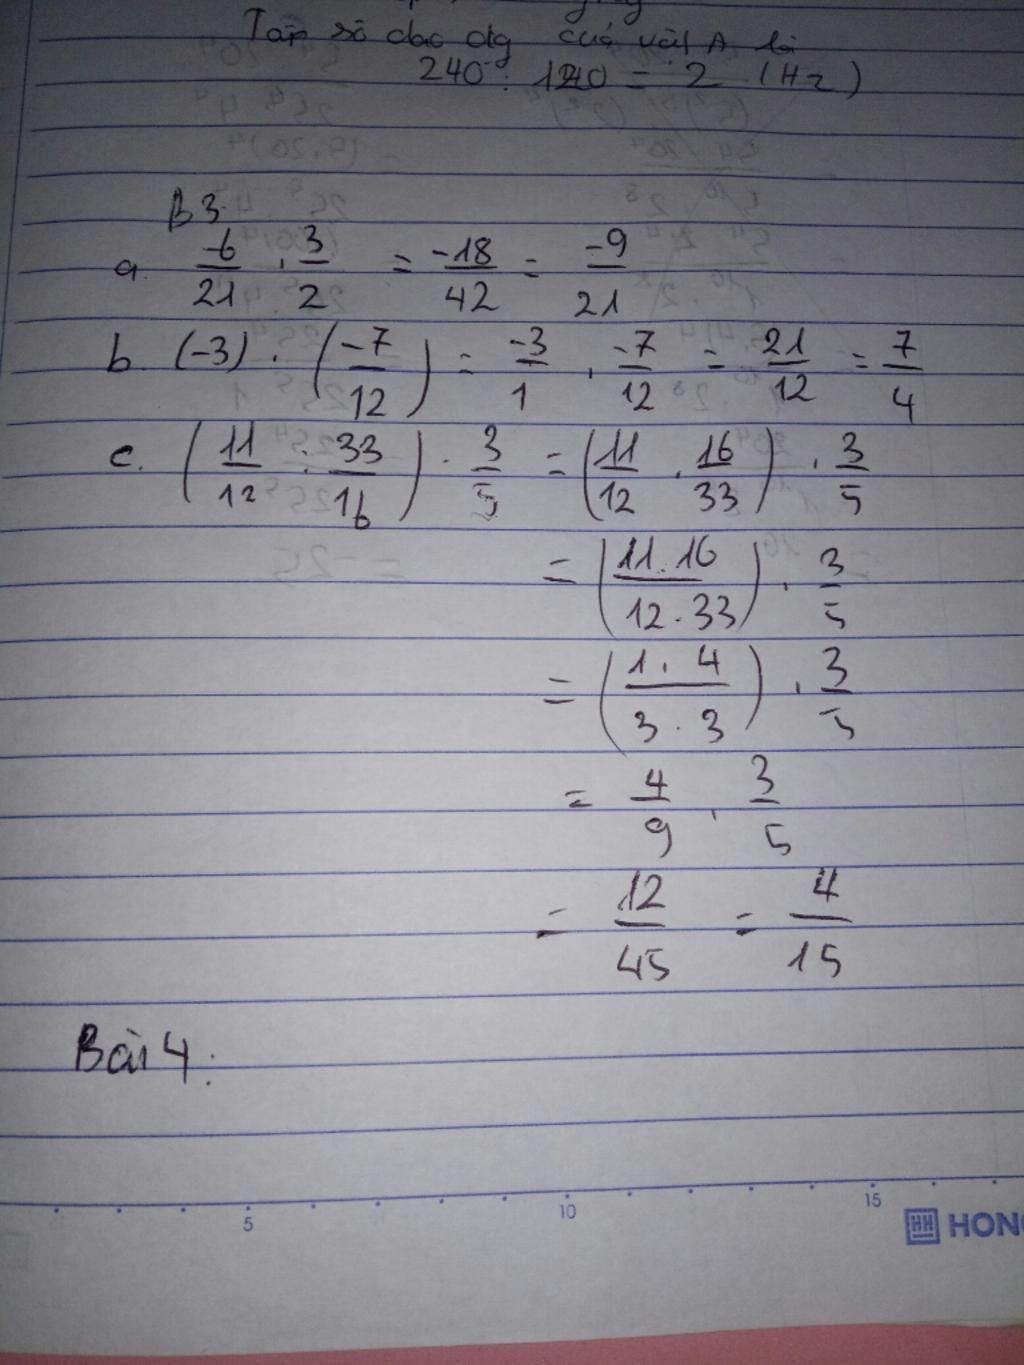 Tần số dao độg của vật A là
240 : 120 = 2 (Hz)
B3
a. -6/21 . 3/2 = -18/42 = -9/21
b. (-3) . (-7/12) = -3/1 . -7/12 = 21/12 = 7/4
c. (11/12 : 33/16) . 3/5 = (11/12 . 16/33) . 3/5
= (11.16/12.33) . 3/5
= (1.4/3.3) . 3/5
= 4/9 . 3/5
= 12/45 = 4/15
Bài 4:
5 10 15
HH HONG